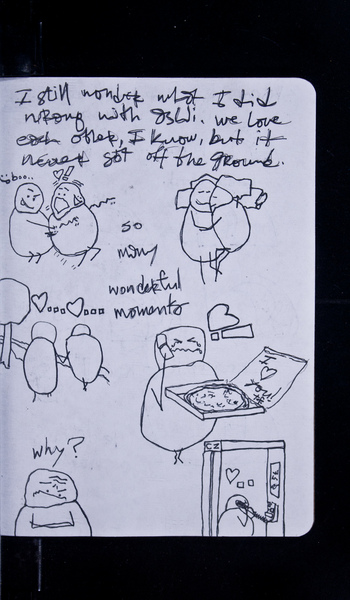 I still wonder what I did
wrong with we love
each other, I know, but it
never got off the ground.
boo..
!!
so
many
wonderful
moments
why?